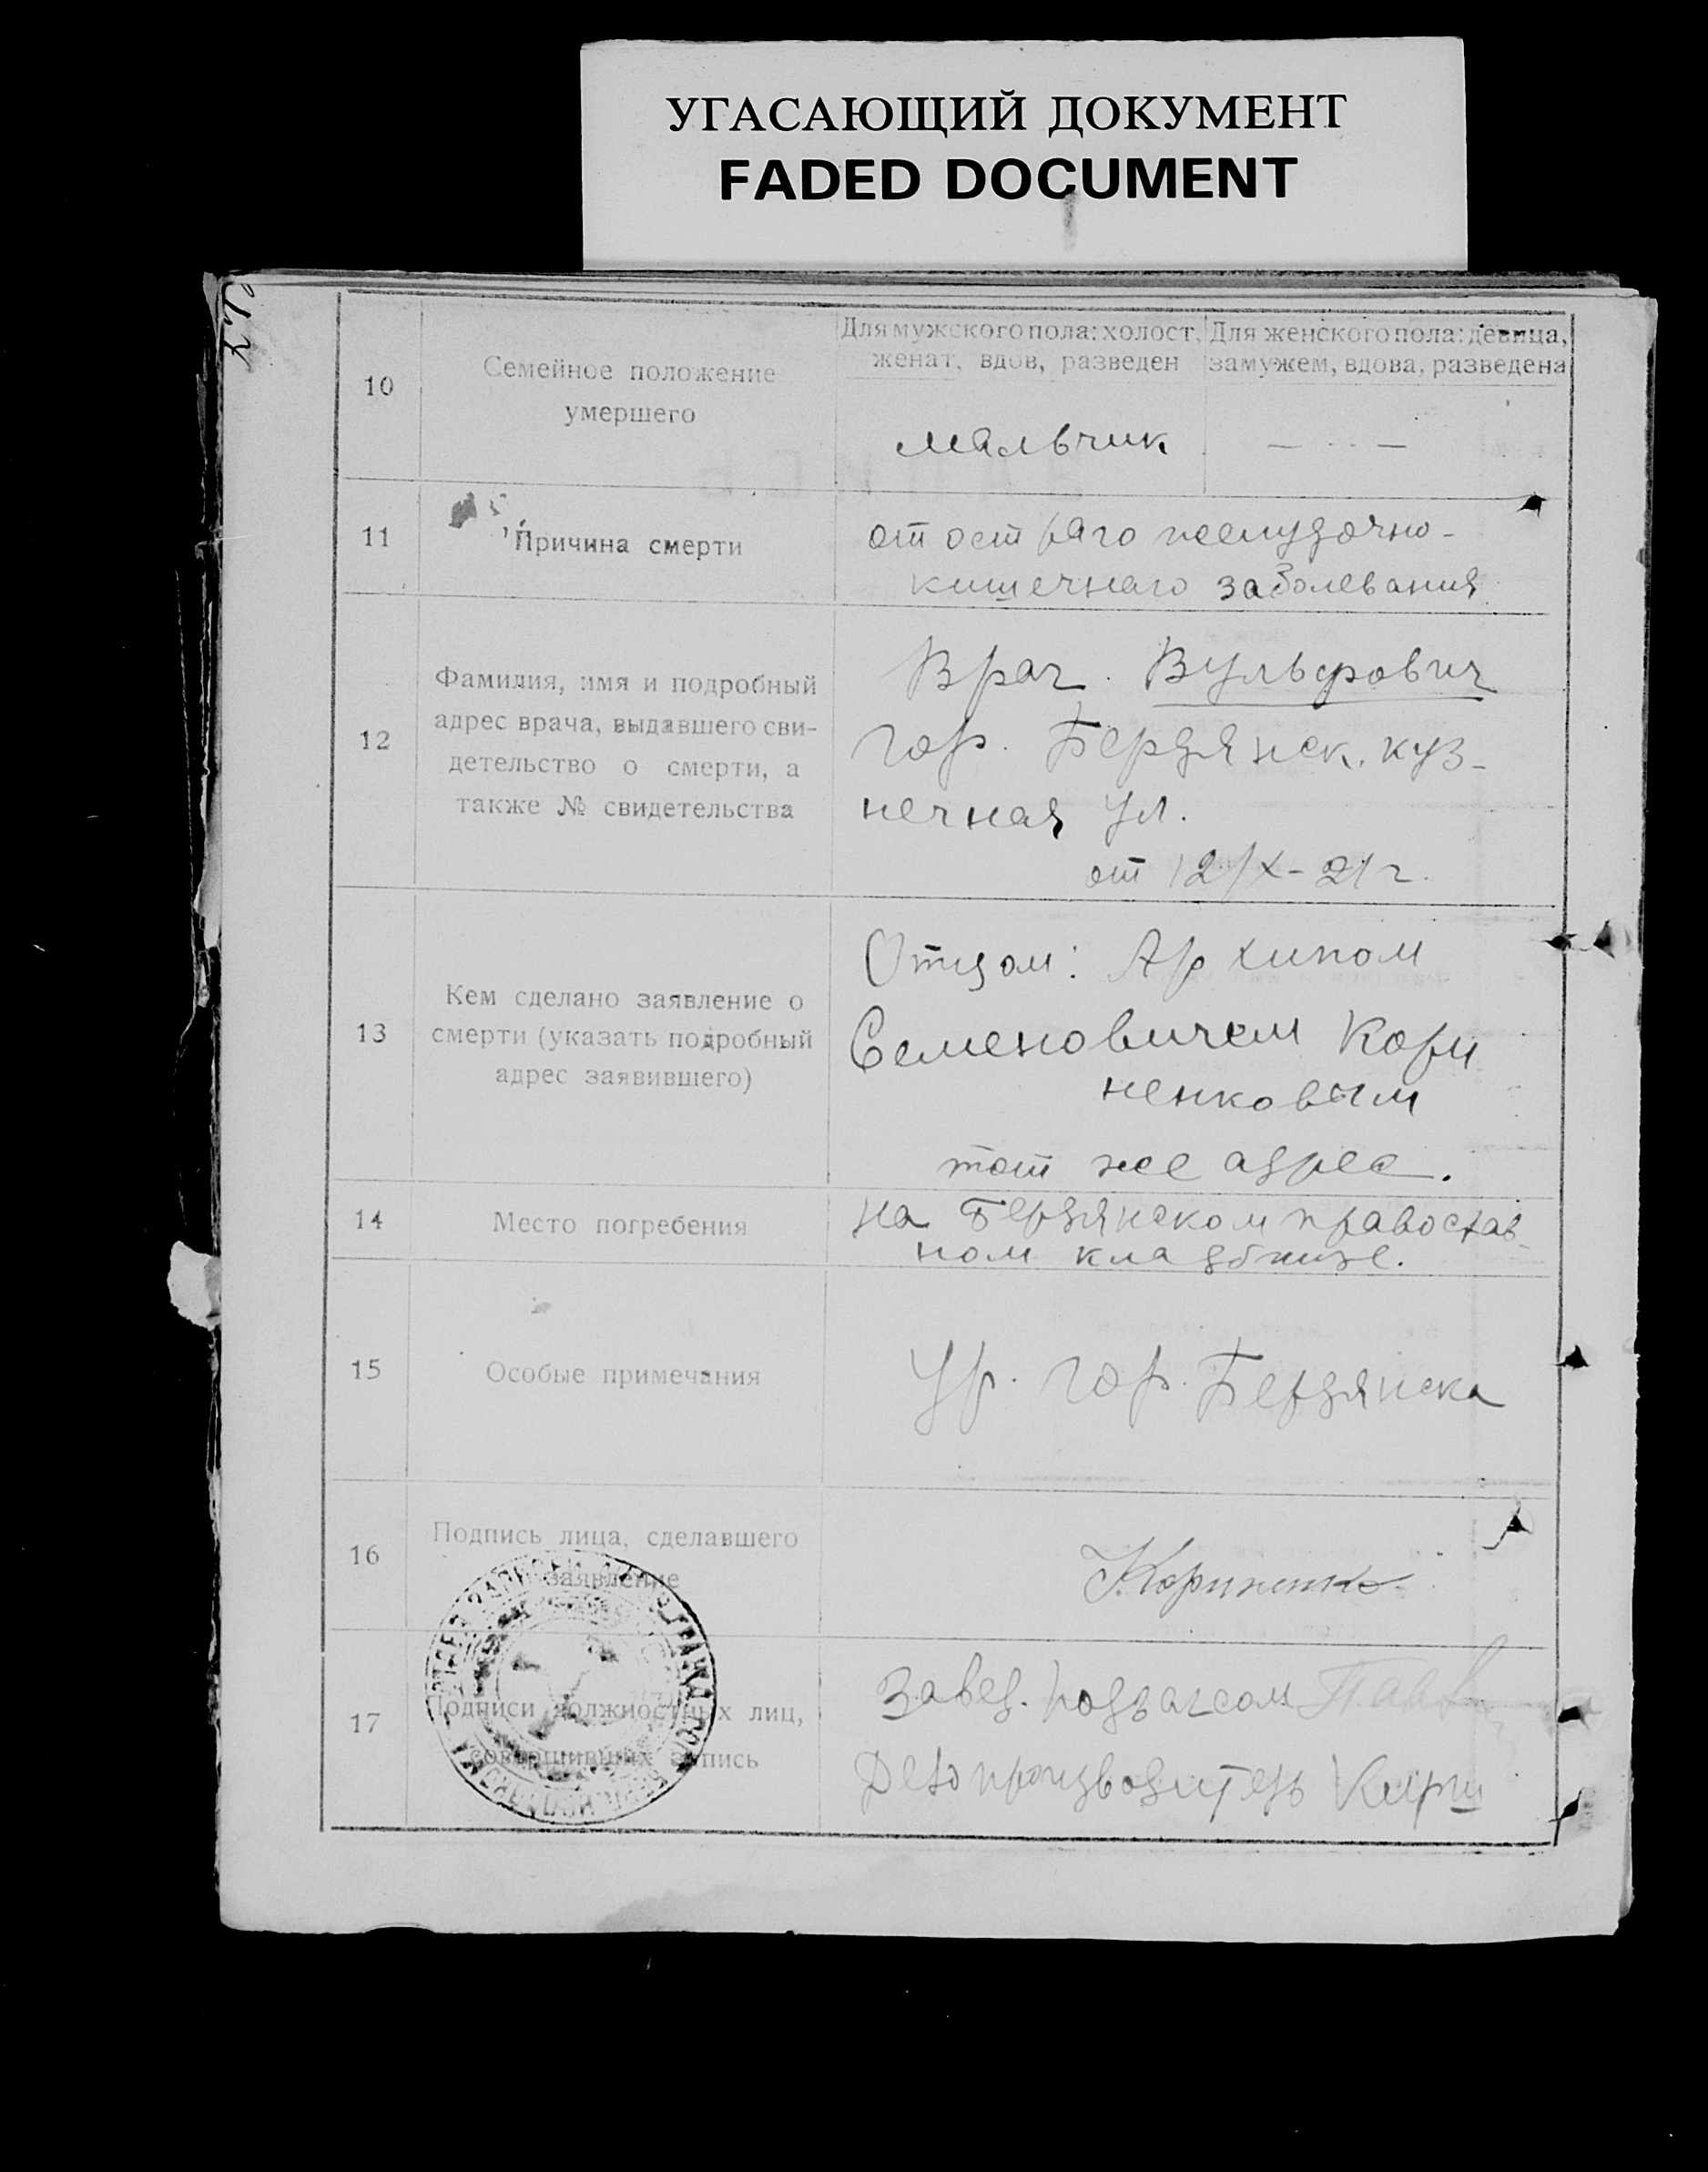 УГАСАЮЩИЙ ДОКУМЕНТ
FADED DOCUMENT
10
Семейное положение
умершего
Для мужского пола: холост,
женат, вдов, разведен
Для женского пола: девица,
замужем, вдова, разведена
мальчик
— — —
11
Причина смерти
от остраго желудочно-
кишечнаго заболевания
12
Фамилия, имя и подробный
адрес врача, выдавшего сви-
детельство о смерти, а
также № свидетельства
Врач. Вульфович
гор. Бердянск. куз-
нечная ул.
от 12/X-21 г.
13
Кем сделано заявление о
смерти (указать подробный
адрес заявившего)
Отцом: Архипом
Семеновичем Кори
ненковым
тот же адрес.
14
Место погребения
на Бердянском православ-
ном кладбище.
15
Особые примечания
Ур. гор. Бердянска
16
Подпись лица, сделавшего
заявление
Кориненко
17
Подписи должностных лиц,
совершивших запись
Завед. подзагсом
Делопроизводитель